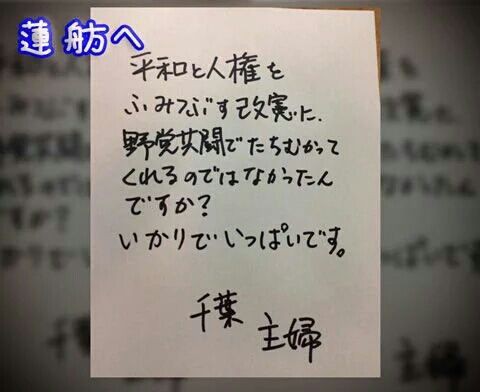 蓮舫へ
平和と人権を
ふみつぶす改憲に、
野党共闘でたちむかって
くれるのではなかったん
ですか?
いかりでいっぱいです。
千葉
主婦